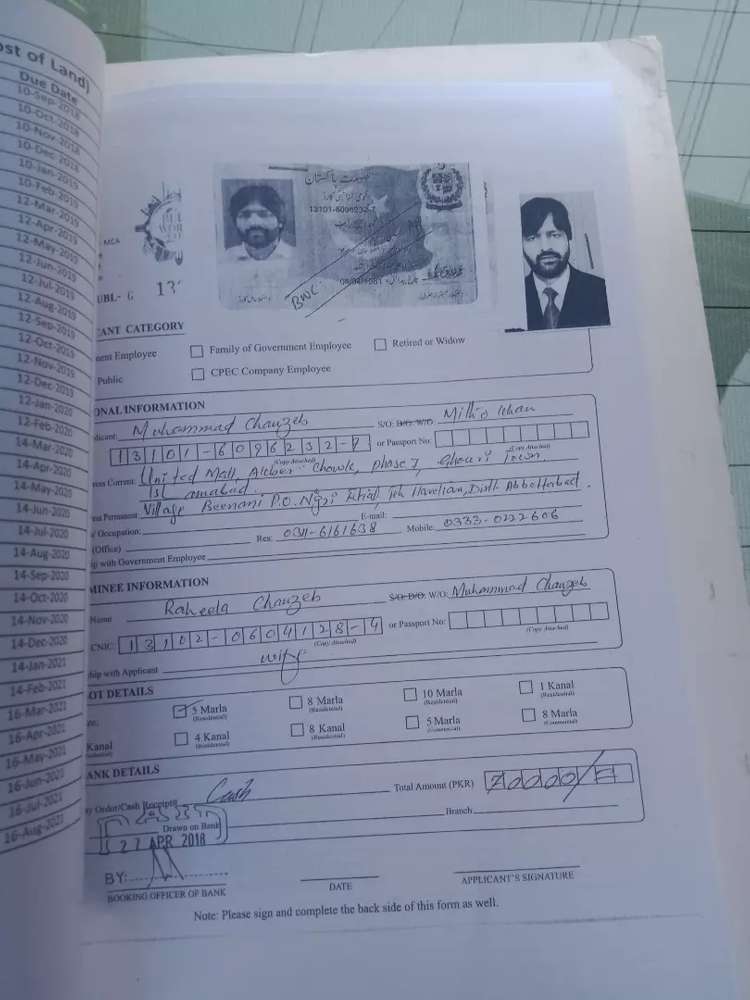 ost of Land)
Due Date
10-Sep-2018
10-Oct-2018
10-Nov-2018
10-Dec-2018
10-Jan-2019
10-Feb-2019
12-Mar-2019
12-Apr-2019
12-May-2019
12-Jun-2019
12-Jul-2019
12-Aug-2019
12-Sep-2019
12-Oct-2019
12-Nov-2019
12-Dec-2019
12-Jan-2020
12-Feb-2020
14-Mar-2020
14-Apr-2020
14-May-2020
14-Jun-2020
14-Jul-2020
14-Aug-2020
14-Sep-2020
14-Oct-2020
14-Nov-2020
14-Dec-2020
14-Jan-2021
14-Feb-2021
16-Mar-2021
16-Apr-2021
16-May-2021
16-Jun-2021
16-Jul-2021
16-Aug-2021
پاکستان
13101-6096232-7
MCA
UBL- G 13
BWC
ANT CATEGORY
ment Employee Family of Government Employee Retired or Widow
Public CPEC Company Employee
ONAL INFORMATION
plicant: Muhammad Chanzeb S/O: D/O: W/O: Mithio Khan
13101-6096232-7 or Passport No:
(Copy Attached) (Copy Attached)
ess Current: United Mall, Chowk, phase 7, Ghouri Town
Islamabad.
ent Permanent Village Beenani P.O. Teh Havelian, Distt Abbottabad.
/ Occupation: E-mail:
(Office) Res: 0311-6161638 Mobile: 0333-0222606
ip with Government Employee
MINEE INFORMATION
Name Raheela Chanzeb S/O: D/O: W/O: Muhammad Chanzeb
CNIC: 13102-0604128-4 or Passport No:
(Copy Attached) (Copy Attached)
ship with Applicant wife
OT DETAILS
5 Marla 8 Marla 10 Marla 1 Kanal
(Residential) (Residential) (Residential) (Residential)
Kanal 4 Kanal 8 Kanal 5 Marla 8 Marla
(Residential) (Residential) (Residential) (Commercial) (Commercial)
ANK DETAILS
y Order/Cash Receipts Cash Total Amount (PKR) 70000/=
Drawn on Bank Branch
27 APR 2018
BY:
BOOKING OFFICER OF BANK DATE APPLICANT'S SIGNATURE
Note: Please sign and complete the back side of this form as well.